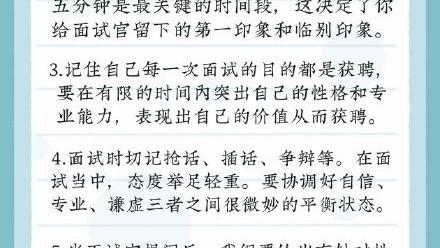 五分钟是最关键的时间段，这决定了你
给面试官留下的第一印象和临别印象。
3.记住自己每一次面试的目的都是获聘，
要在有限的时间内突出自己的性格和专
业能力，表现出自己的价值从而获聘。
4.面试时切记抢话、插话、争辩等。在面
试当中，态度举足轻重。要协调好自信、
专业、谦虚三者之间很微妙的平衡状态。